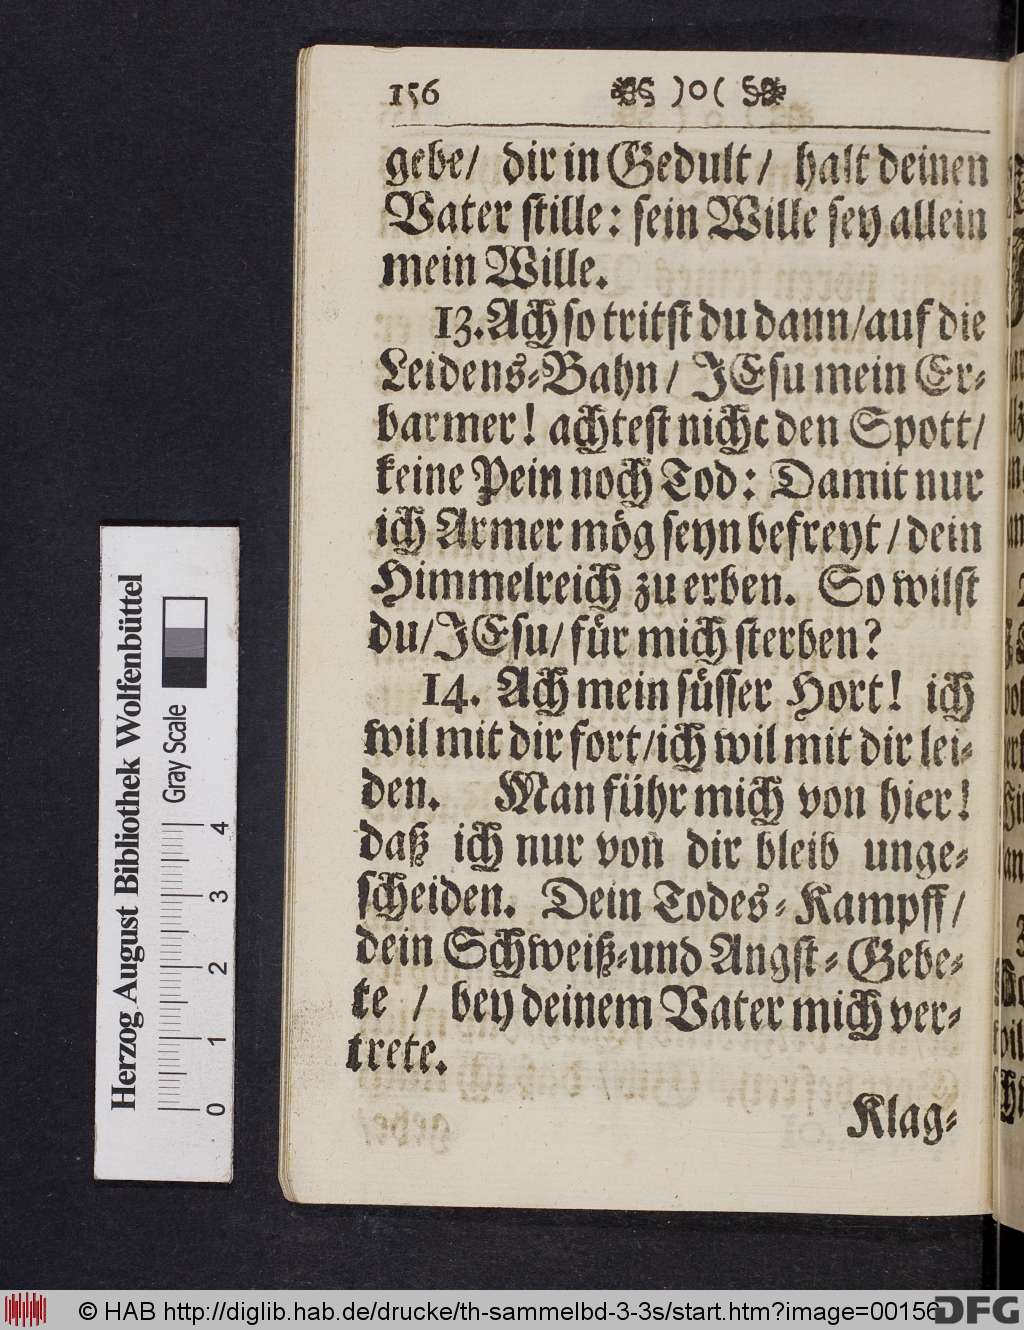 156 )o(
gebe/ dir in Gedult/ halt deinen
Vater stille: sein Wille sey allein
mein Wille.
13. Ach so tritst du dann/auf die
Leidens-Bahn/ JEsu mein Er-
barmer! achtest nicht den Spott/
keine Pein noch Tod: Damit nur
ich Armer mög seyn befreyt/dein
Himmelreich zu erben. So wilst
du/JEsu/für mich sterben?
14. Ach mein süsser Hort! ich
wil mit dir fort/ich wil mit dir lei-
den. Man führ mich von hier!
daß ich nur von dir bleib unge-
scheiden. Dein Todes-Kampff/
dein Schweiß-und Angst-Gebe-
te / bey deinem Vater mich ver-
trete.
Klag-
Herzog August Bibliothek Wolfenbüttel
Gray Scale
0 1 2 3 4
© HAB http://diglib.hab.de/drucke/th-sammelbd-3-3s/start.htm?image=00156
DFG